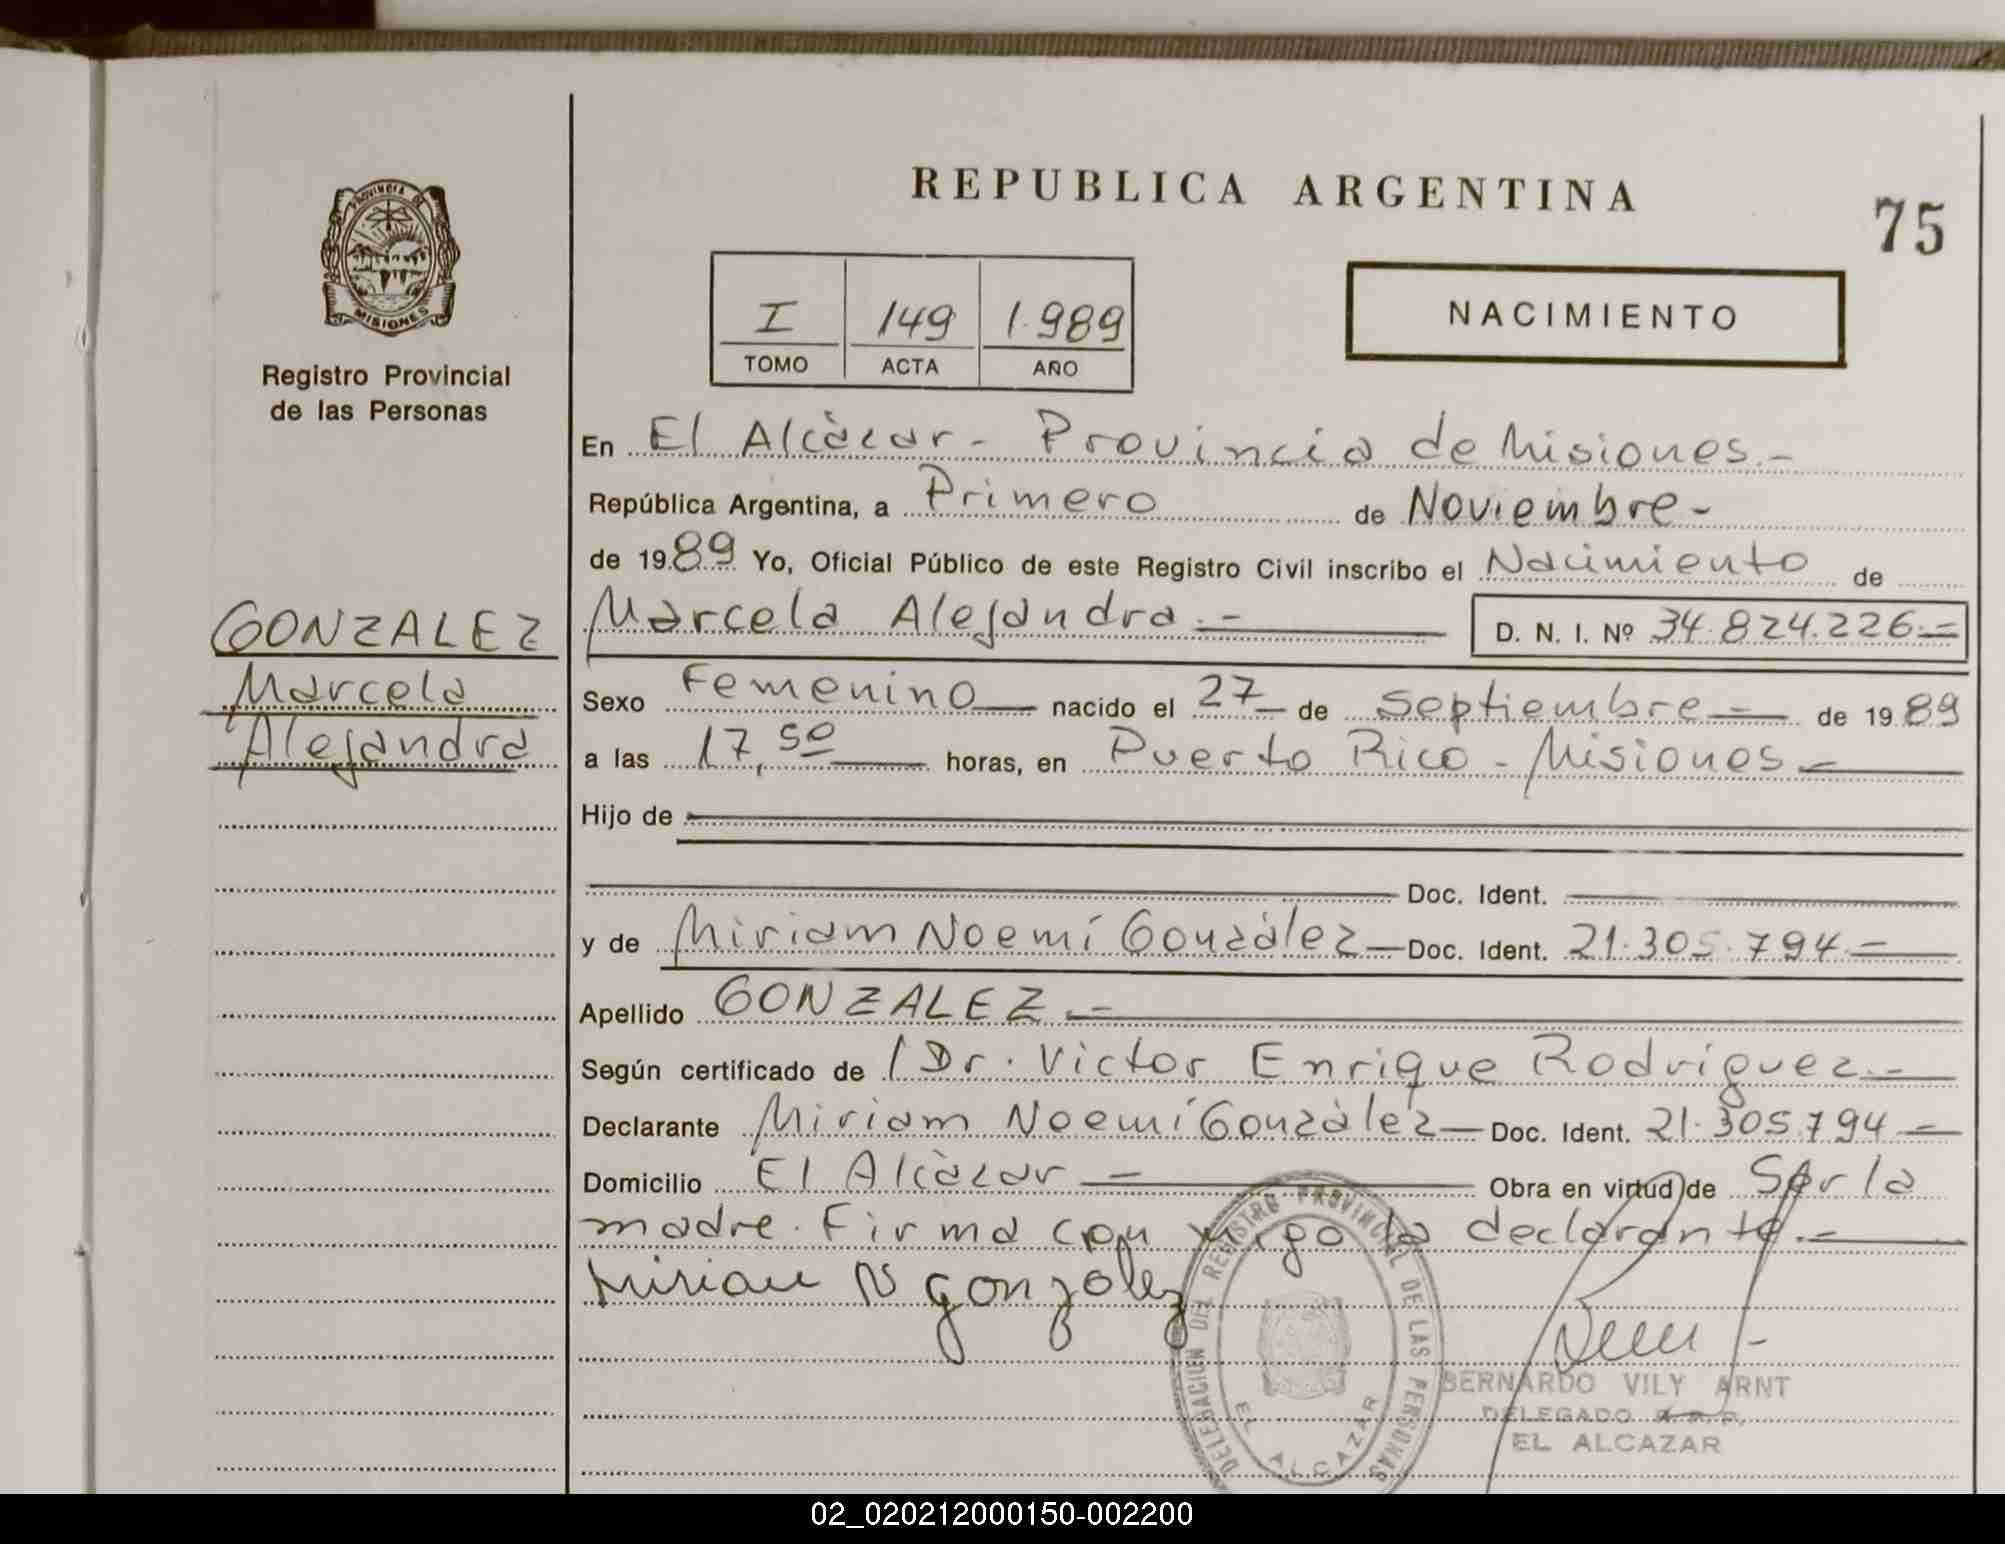 REPUBLICA ARGENTINA
75
PROVINCIA DE
MISIONES
Registro Provincial
de las Personas
I 149 1.989
TOMO ACTA AÑO
NACIMIENTO
En El Alcàzar - Provincia de Misiones.-
República Argentina, a Primero de Noviembre-
de 1989 Yo, Oficial Público de este Registro Civil inscribo el Nacimiento de
Marcela Alejandra.- D. N. I. Nº 34.824.226.-
GONZALEZ
Marcela
Alejandra
Sexo Femenino nacido el 27 de Septiembre - de 1989
a las 17,50 horas, en Puerto Rico - Misiones -
Hijo de
Doc. Ident.
y de Miriam Noemí Gonzàlez - Doc. Ident. 21.305.794.-
Apellido GONZALEZ.-
Según certificado de Dr. Victor Enrique Rodríguez.-
Declarante Miriam Noemí Gonzàlez - Doc. Ident. 21.305.794 -
Domicilio El Alcàzar - Obra en virtud de Ser la
madre. Firma con migo la declarante.-
Miriam N gonzalez
DELEGACION DEL REGISTRO PROVINCIAL DE LAS PERSONAS
EL ALCAZAR
BERNARDO VILY ARNT
DELEGADO R.P.P.
EL ALCAZAR
02_020212000150-002200